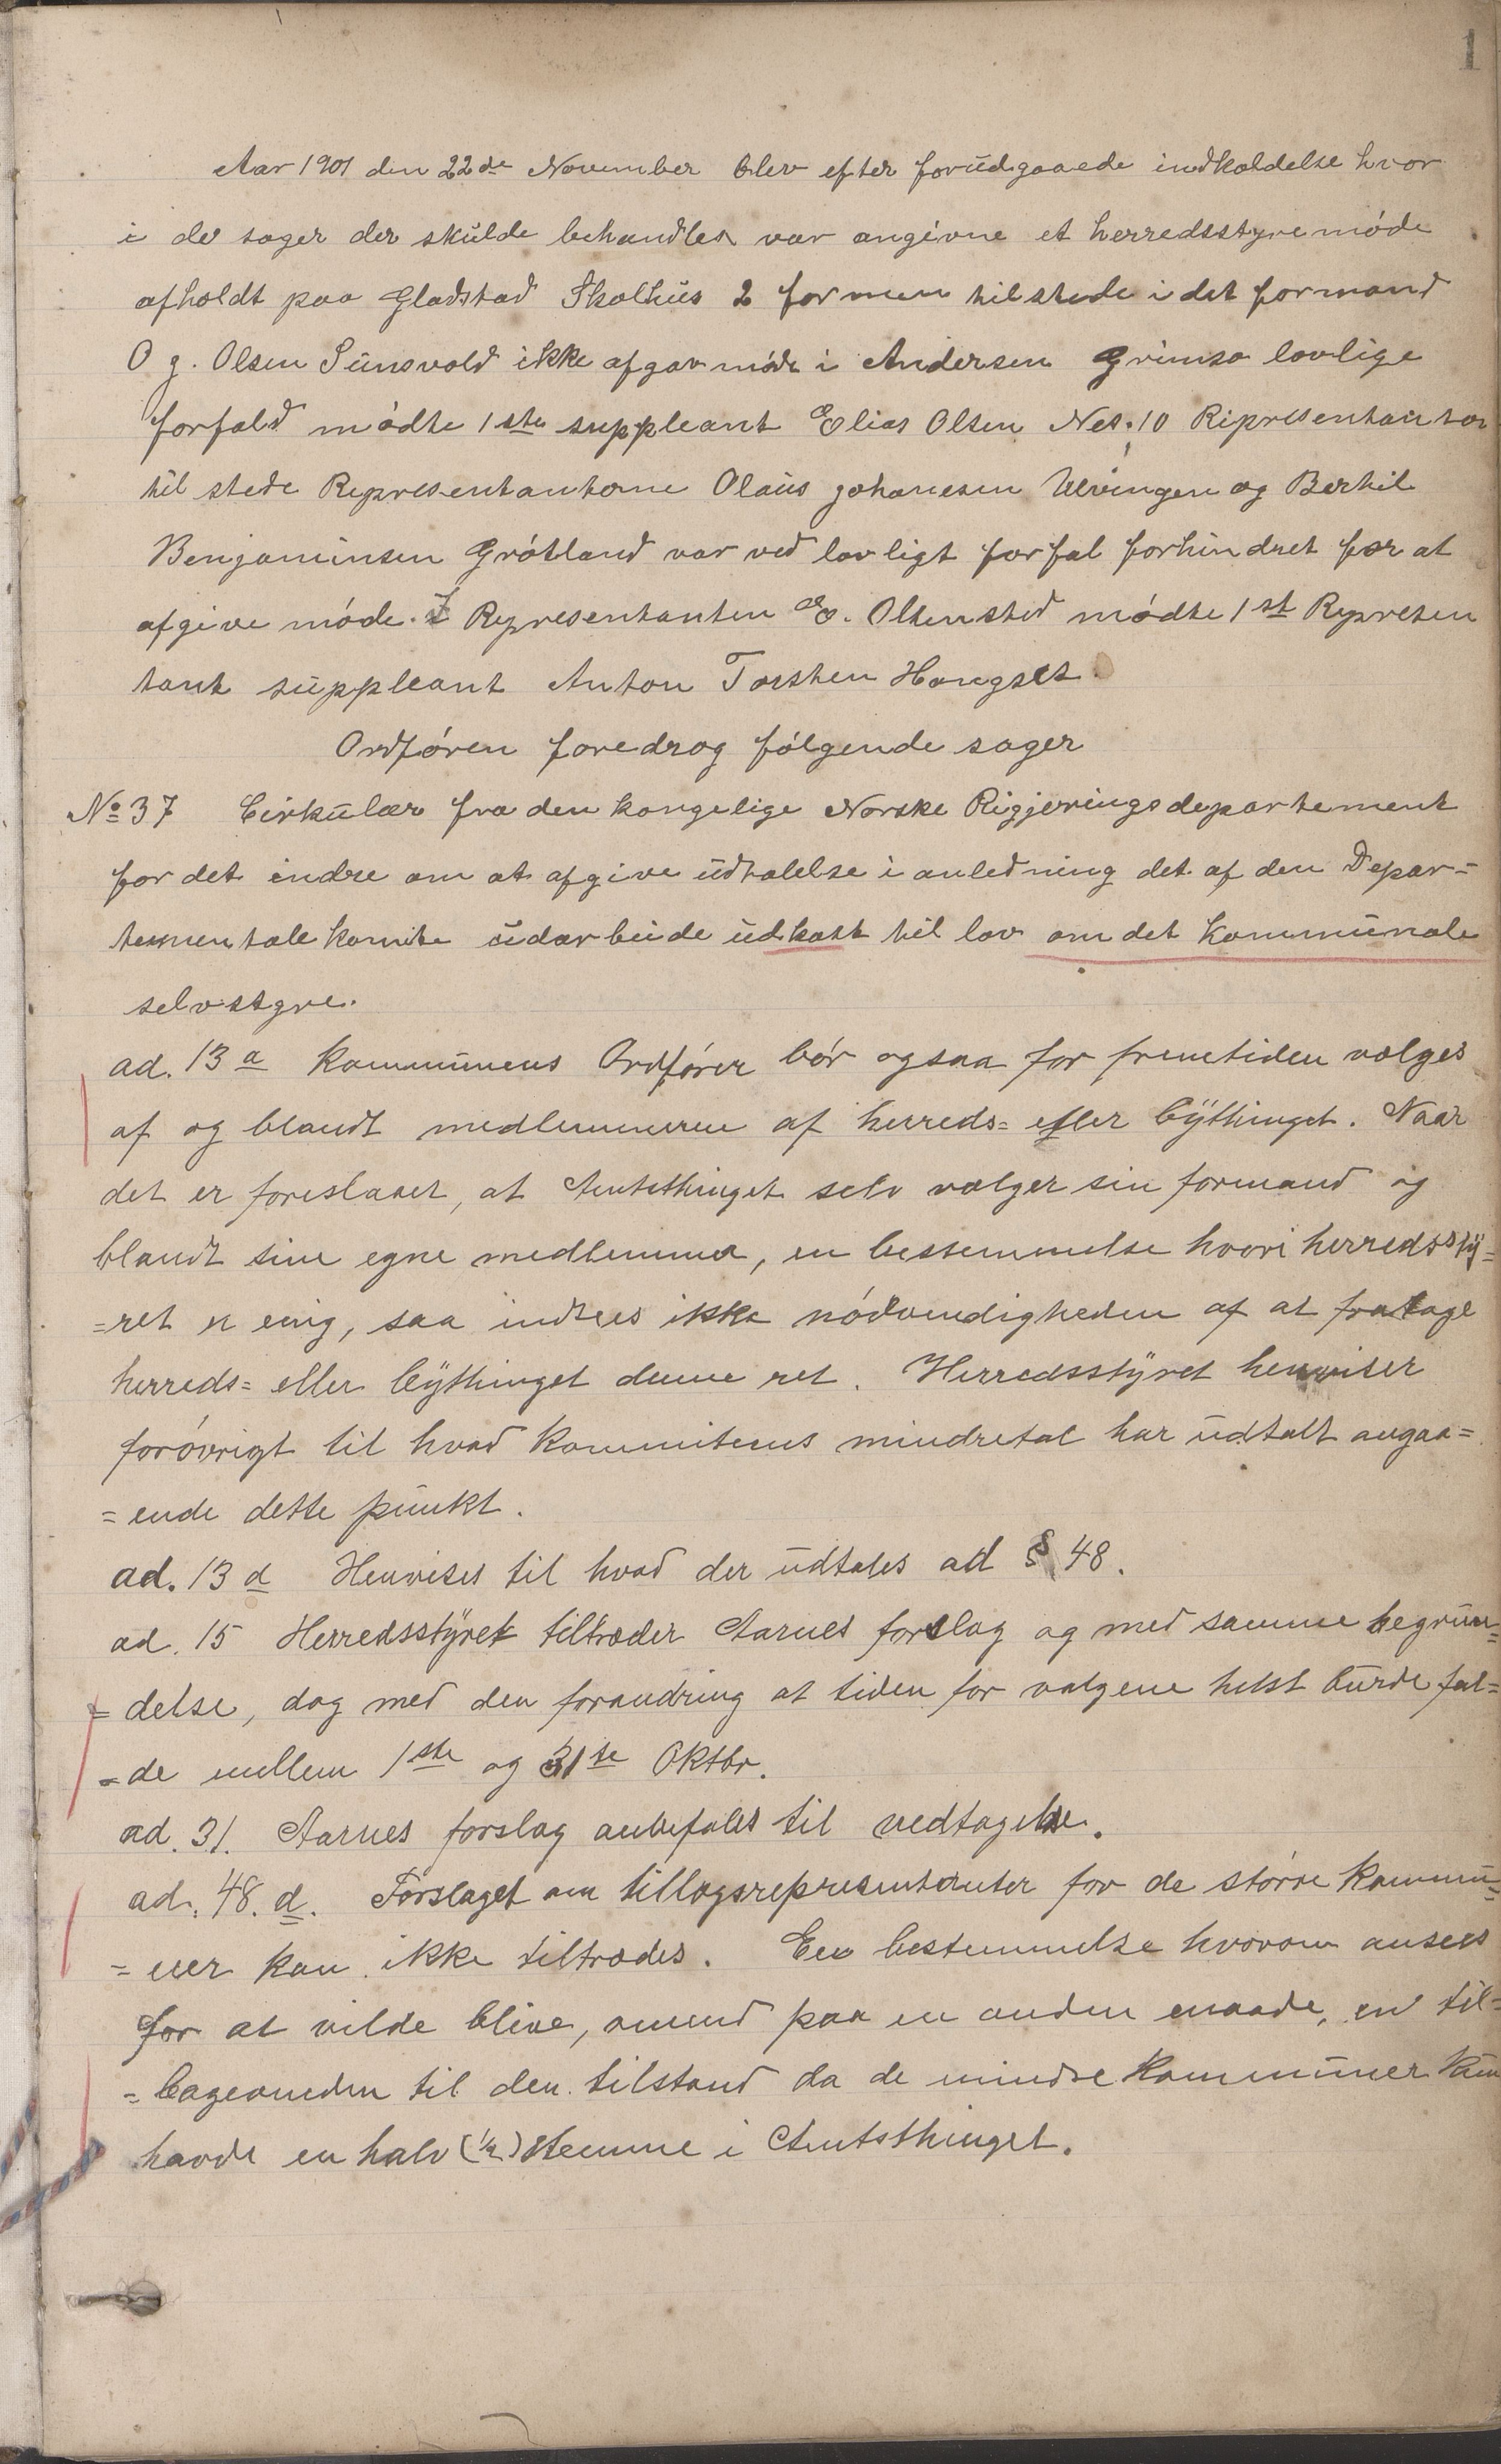 1
Aar 1901 den 22de November blev efter forudgaaede indkaldelse hvor
i de sager der skulde behandles var angivne et herredsstyremöde
afholdt paa Gladstad Skolhus 2 formen tilstede i det formand
O g. Olsen Sünsvold ikke afgav möde i Andersen Grimsö lovlige
forfald mödte 1ste suppleant Elias Olsen Nes. 10 Ripresentantar
til stede Representanterne Olaus johanesen Ulvingen og Berhil
Benjaminsen Grótland var ved lovligt forfal forhindret for at
afgive möde. I Representanten E. Olsen sted mödte 1st Represen
tant suppleant Anton Torsten Hongset.
Ordfören foredrog fölgende sager
No 37 Cirkulær fra den kongelige Norske Rigjeringsdepartement
for det indre om at afgive udtalelse i anledning det af den Depar=
tementale komite udarbeide udkast til lov om det kommunale
selvstyre.
ad. 13 a Kommunens Ordförer bör ogsaa for fremtiden vælges
af og blandt medlemmerne af herreds= eller bythinget. Naar
det er foreslaaet, at Amtsthinget selv vælger sin formand og
blandt sine egne medlemmer, en bestemmelse hvori herredssty=
=ret er enig, saa indsees ikke nödvendigheden af at fratage
herreds= eller bythinget denne ret. Herredsstyret henviser
forövrigt til hvad kommiteens mindretal har udtalt angaa=
=ende dette punkt.
ad. 13 d Henvises til hvad der udtales ad § 48.
ad. 15 Herredsstyret tiltræder Aarnes forslag og med samme begrun=
=delse, dog med den forandring at tiden for valgene helst burde fal=
=de mellem 1ste og 31te Oktbr.
ad. 31. Aarnes forslag anbefales til vedtagelse.
ad. 48. d. Forslaget om tillægsrepresentanter for de större kommu=
=ner kan ikke tiltrædes. En bestemmelse hvorom ansees
for at vilde blive, omend paa en anden maade, en til=
=bagevenden til den tilstand da de mindre kommuner kun
havde en halv (½) stemme i Amtsthinget.